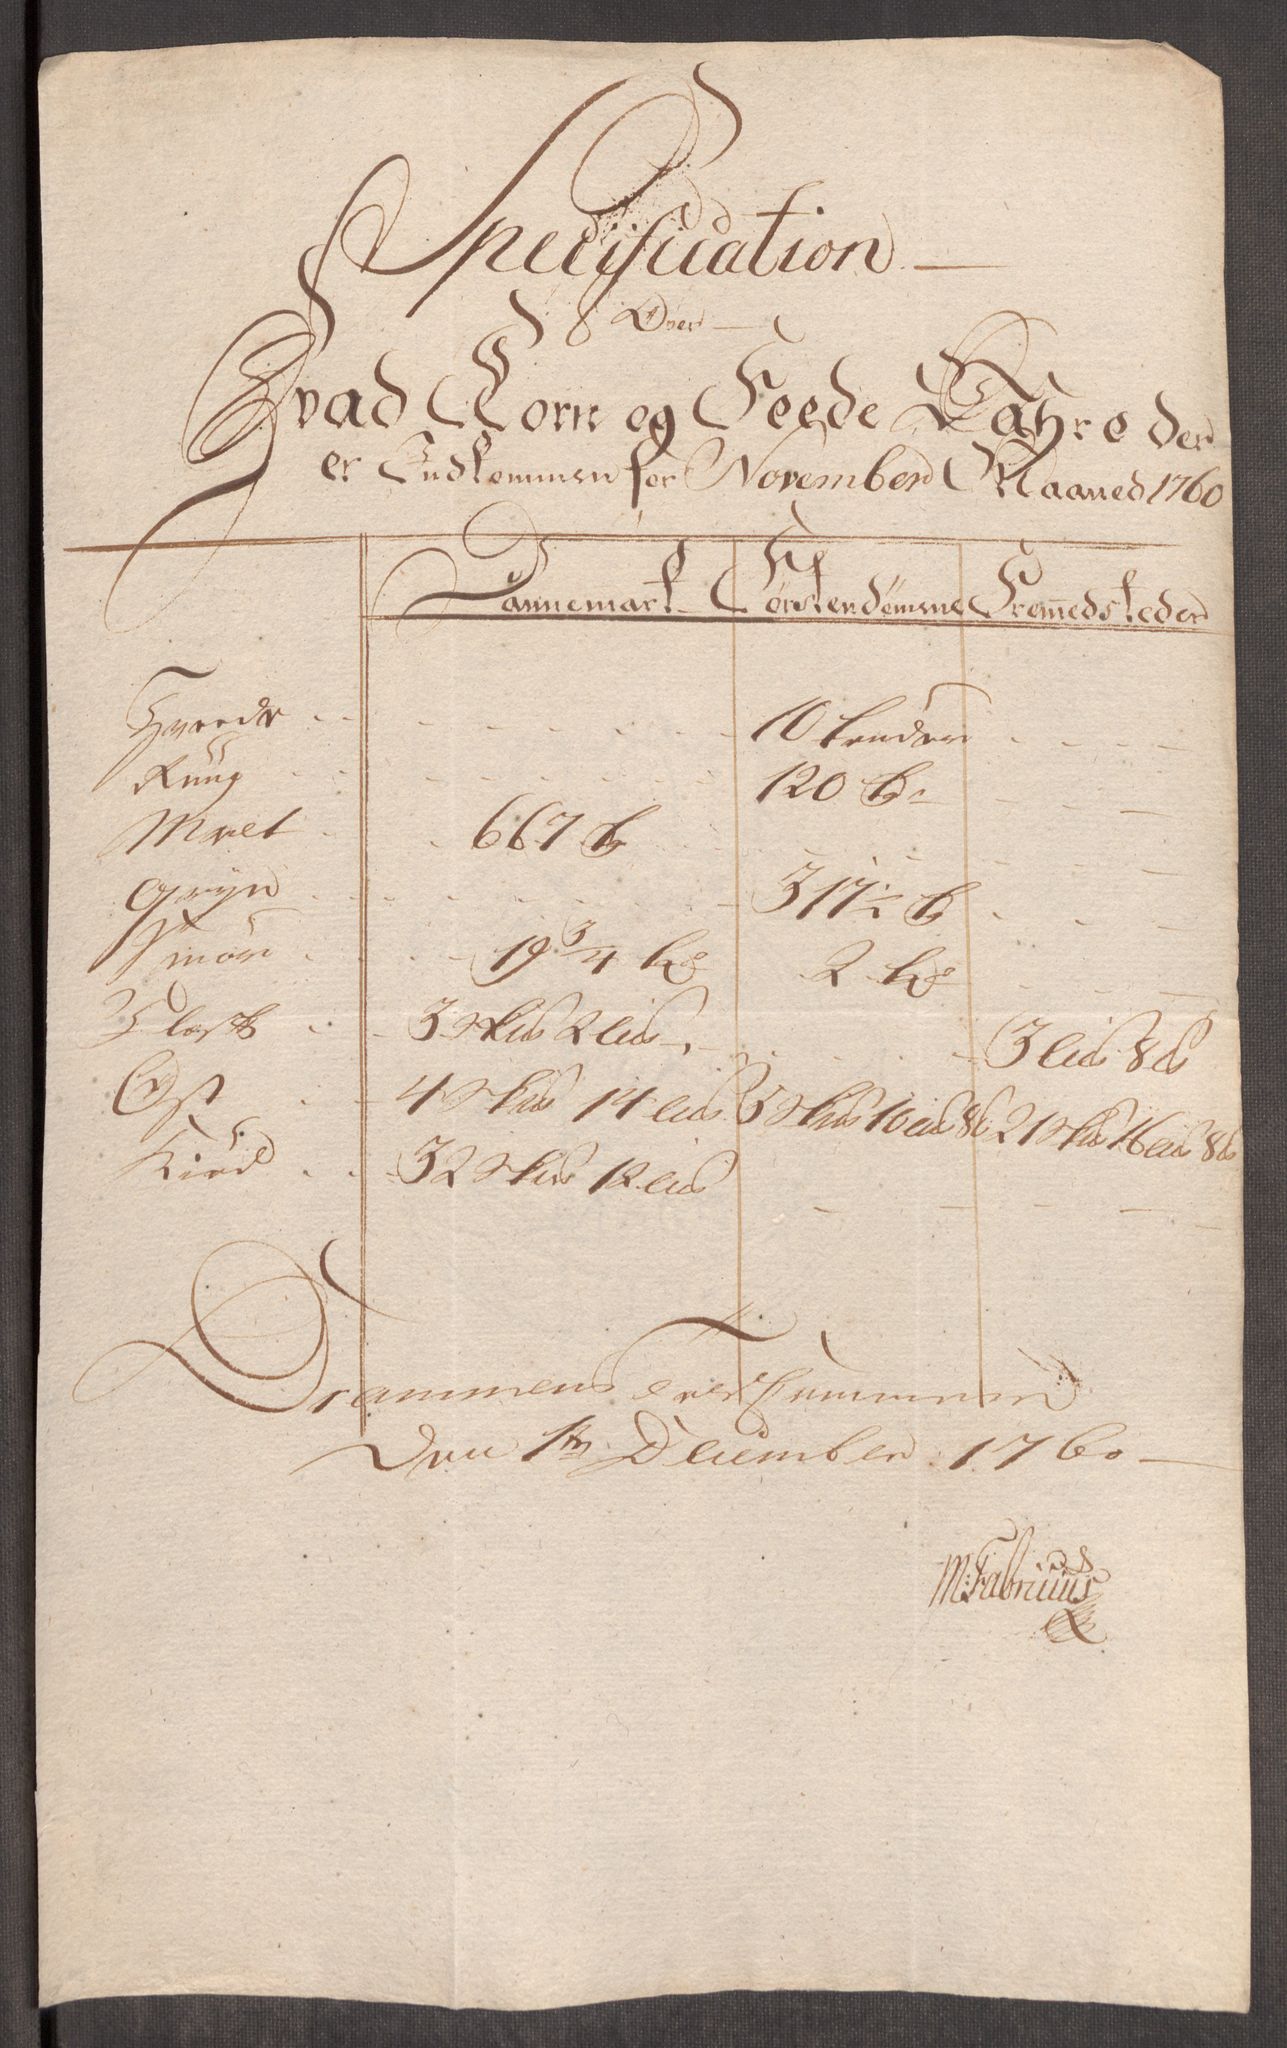 Specification
Over
Hvad Korn og Feede Wahre der
er Indkommen for November Maaned 1760
Dannemark Førstendømme Fremedsteder
Hvede 10 tender
Rüug 120 t
Malt 667 t
Gryn 317½ t
Smör 19 3/4 t 2 t
Flesk 3 Skp 2 lis 3 lis 8
Ost 4 Skp 14 lis 3 Skp 10 lis 8 21 Skp 16 lis 8
Kiød 32 Skp 12 lis
Drammens
Den 1te December 1760
M Fabricius